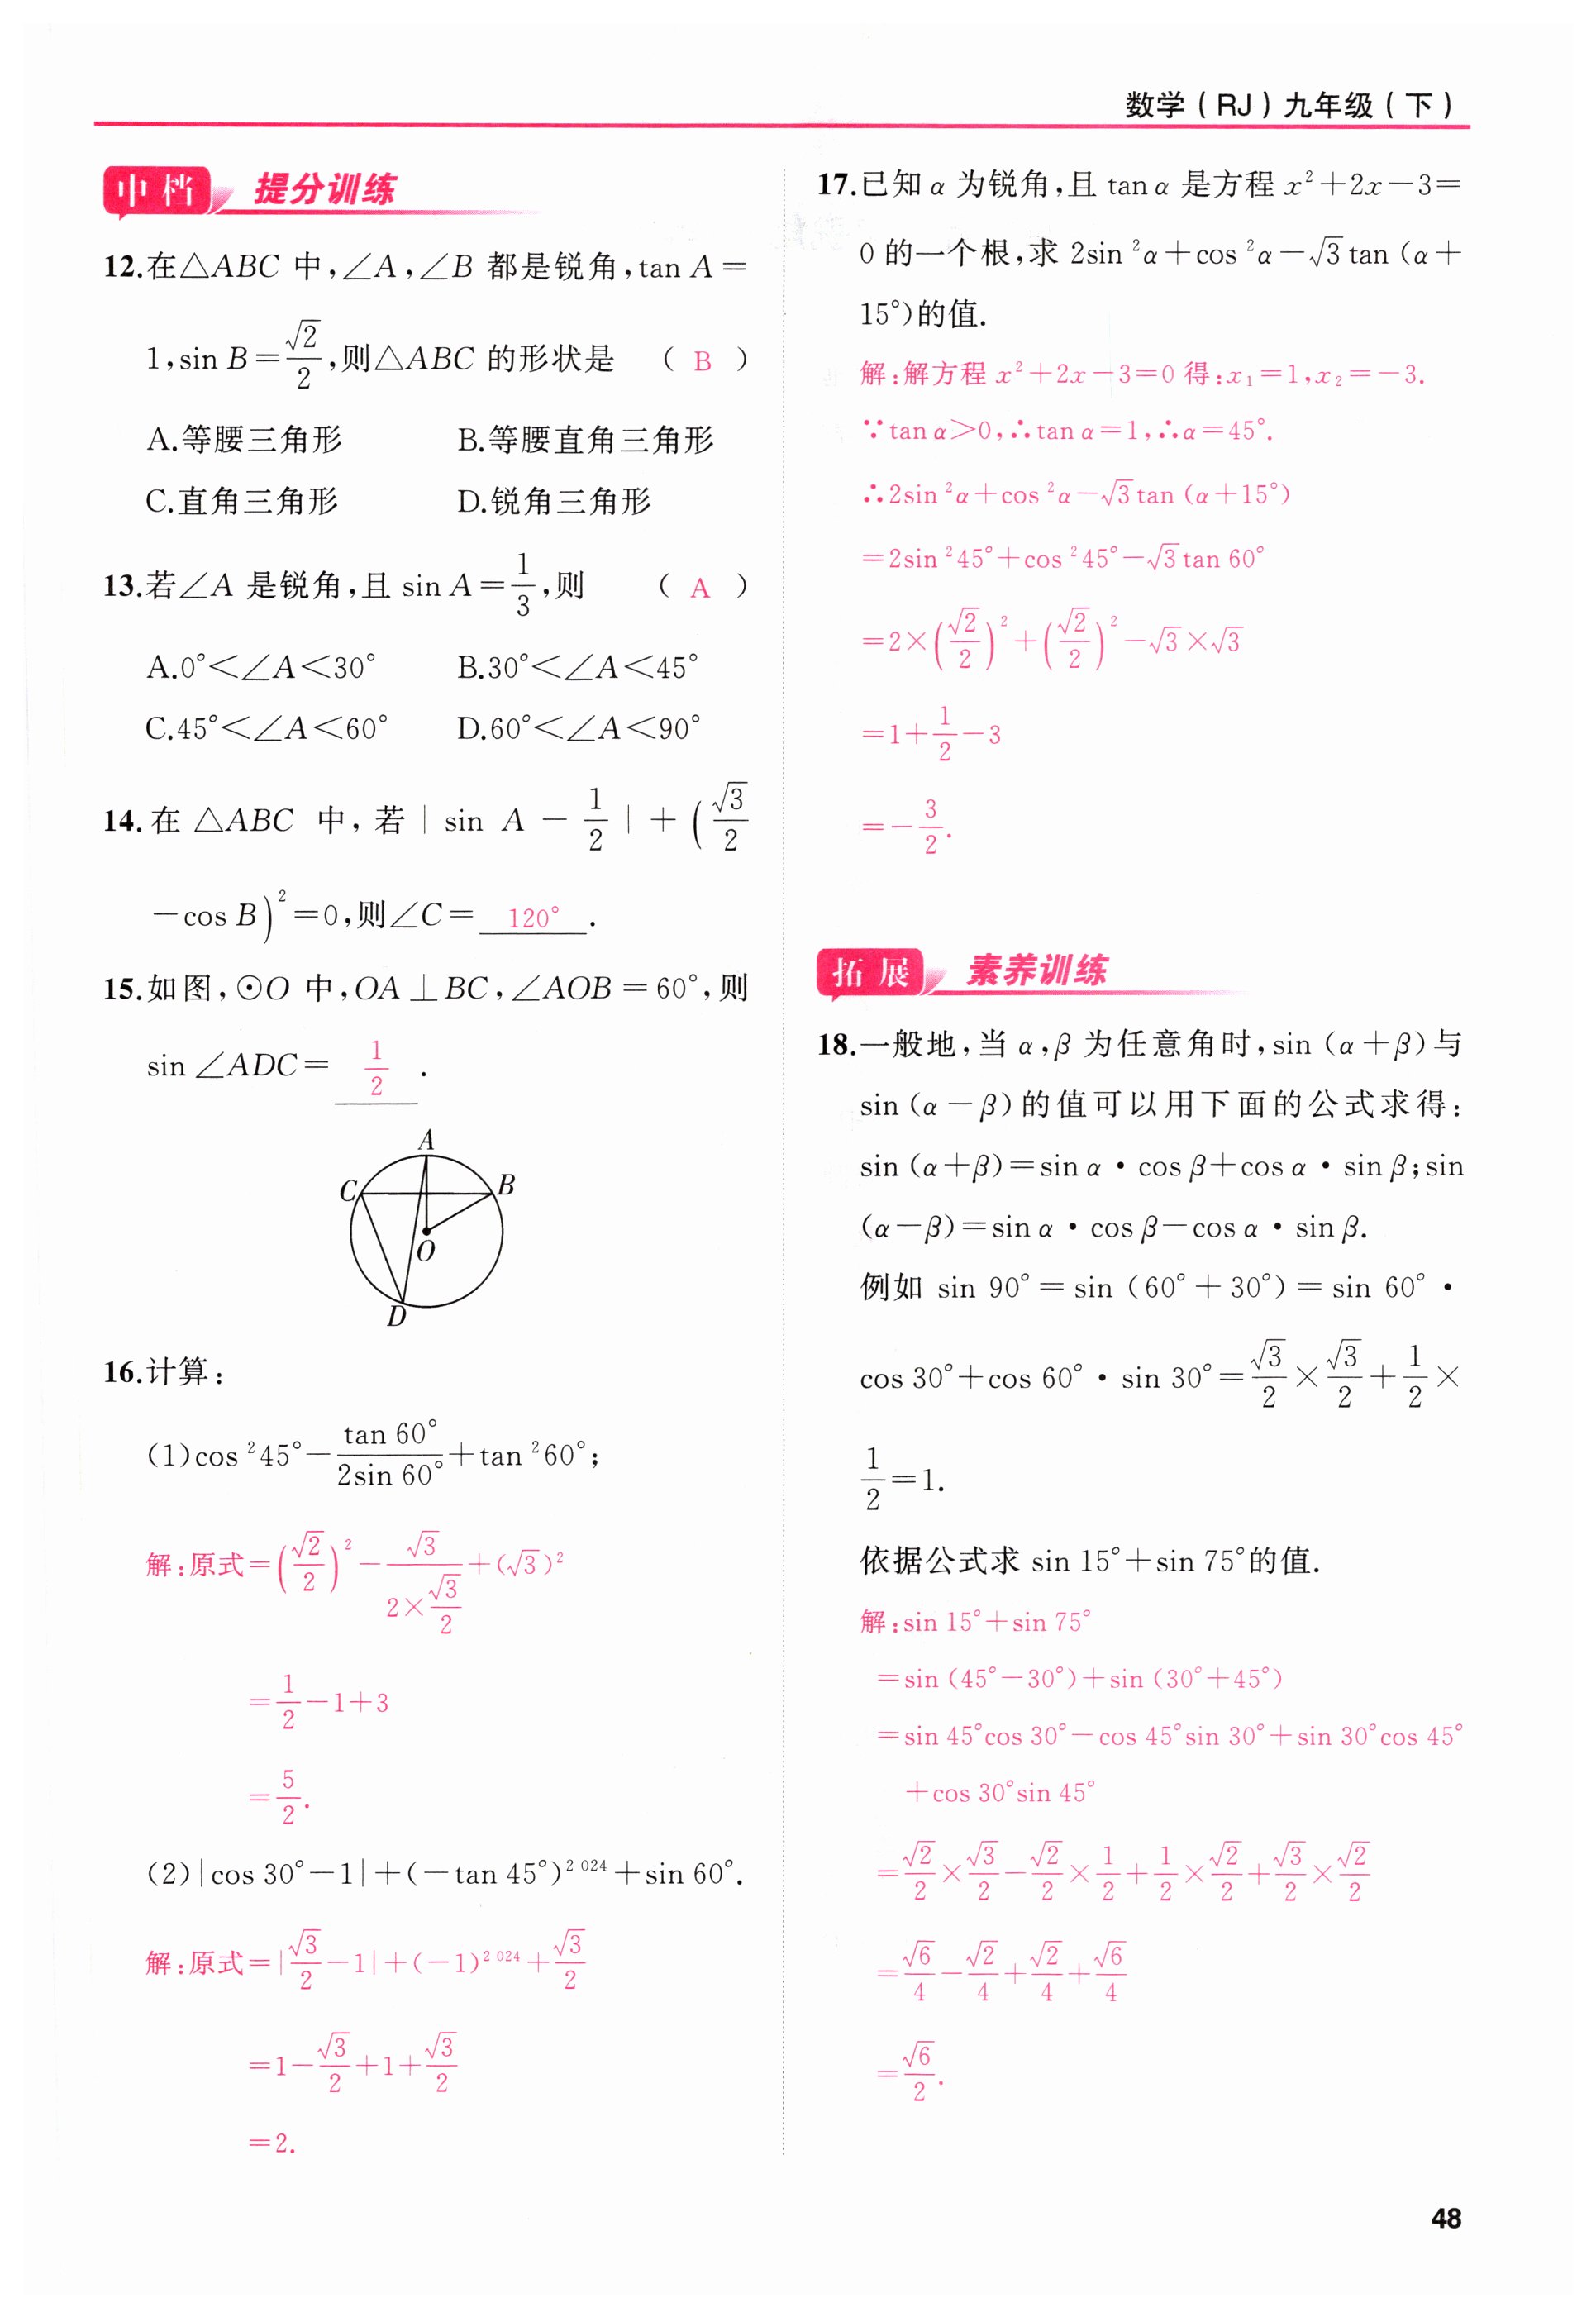 数学(RJ)九年级(下)
中档 提分训练
12.在△ABC 中,∠A,∠B 都是锐角,tan A=
1,sin B=√2/2,则△ABC 的形状是 ( B )
A.等腰三角形 B.等腰直角三角形
C.直角三角形 D.锐角三角形
13.若∠A 是锐角,且 sin A=1/3,则 ( A )
A.0°<∠A<30° B.30°<∠A<45°
C.45°<∠A<60° D.60°<∠A<90°
14.在 △ABC 中,若 |sin A - 1/2| + (√3/2
-cos B)²=0,则∠C= 120° .
15.如图,⊙O 中,OA⊥BC,∠AOB=60°,则
sin ∠ADC= 1/2 .
A
C B
O
D
16.计算:
(1)cos ²45°-tan 60°/2sin 60°+tan ²60°;
解:原式=(√2/2)²-√3/(2×√3/2)+(√3)²
=1/2-1+3
=5/2.
(2)|cos 30°-1|+(-tan 45°)²⁰²⁴+sin 60°.
解:原式=|√3/2-1|+(-1)²⁰²⁴+√3/2
=1-√3/2+1+√3/2
=2.
17.已知 α 为锐角,且 tan α 是方程 x²+2x-3=
0 的一个根,求 2sin ²α+cos ²α-√3 tan (α+
15°)的值.
解:解方程 x²+2x-3=0 得:x₁=1,x₂=-3.
∵tan α>0,∴tan α=1,∴α=45°.
∴2sin ²α+cos ²α-√3 tan (α+15°)
=2sin ²45°+cos ²45°-√3 tan 60°
=2×(√2/2)²+(√2/2)²-√3×√3
=1+1/2-3
=-3/2.
拓展 素养训练
18.一般地,当 α,β 为任意角时,sin (α+β)与
sin (α-β)的值可以用下面的公式求得:
sin (α+β)=sin α·cos β+cos α·sin β;sin
(α-β)=sin α·cos β-cos α·sin β.
例如 sin 90°=sin (60°+30°)=sin 60°·
cos 30°+cos 60°·sin 30°=√3/2×√3/2+1/2×
1/2=1.
依据公式求 sin 15°+sin 75°的值.
解:sin 15°+sin 75°
=sin (45°-30°)+sin (30°+45°)
=sin 45°cos 30°-cos 45°sin 30°+sin 30°cos 45°
+cos 30°sin 45°
=√2/2×√3/2-√2/2×1/2+1/2×√2/2+√3/2×√2/2
=√6/4-√2/4+√2/4+√6/4
=√6/2.
48